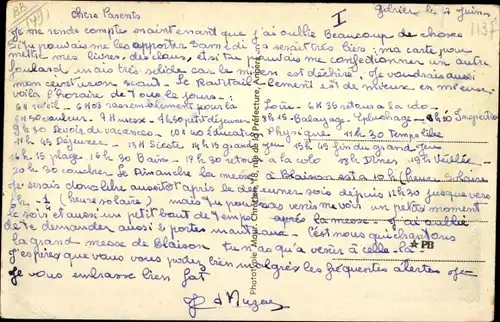 Chers Parents
I
Gohier le 7 Juin
1137
Je me rends compte maintenant que j'ai oublié Beaucoup de choses
Si tu pouvais me les apporter Samedi ça serait très bien : ma carte pour
mettre mes livres, des clous, et si tu pouvais me confectionner un autre
foulard mais très solide car le mien est déchiré. Je voudrais aussi
mon ceinturon scout. Le Ravitaillement est de mieux en mieux.
voilà l'horaire de tous le jours
6 H réveil - 6 H 05 rassemblement pour la Loire - 6 H 35 retour à la colo
6 H 50 couleur - 7 H messe - 4 H 30 petit déjeuner - 8 H 15 - Balayage - Epluchage - 8 H 50 Inspection
9 H 30 Devoir de vacances - 10 H 40 éducation Physique 11 H 30 Temps libre
11 H 45 Déjeuner - 13 H Sieste 14 H 15 grand jeu - 15 H 15 fin du grand jeu
16 H 15 plage 16 H 30 Bain - 17 H 30 retour à la colo 18 H Diner - 19 H Veillée
20 H 30 coucher. Le Dimanche la messe à Blaison est à 10 H (heure solaire
Je serais donc libre aussitôt après le déjeuner soit depuis 12 H 30 jusque vers
(heure solaire) mais tu pourras venir me voir un petit moment
le soir et aussi un petit bout de temps après la messe - J'ai oublié
de te demander aussi 2 porte manteaux - C'est nous qui chantons
la grand messe de Blaison tu n'as qu'à venir à celle-là.
J'espère que vous vous portez bien malgrés les fréquentes alertes
Je vous embrasse bien fort
★PB
Phototypie - Mour. Chrétien, 18, rue de la Préfecture, Angers